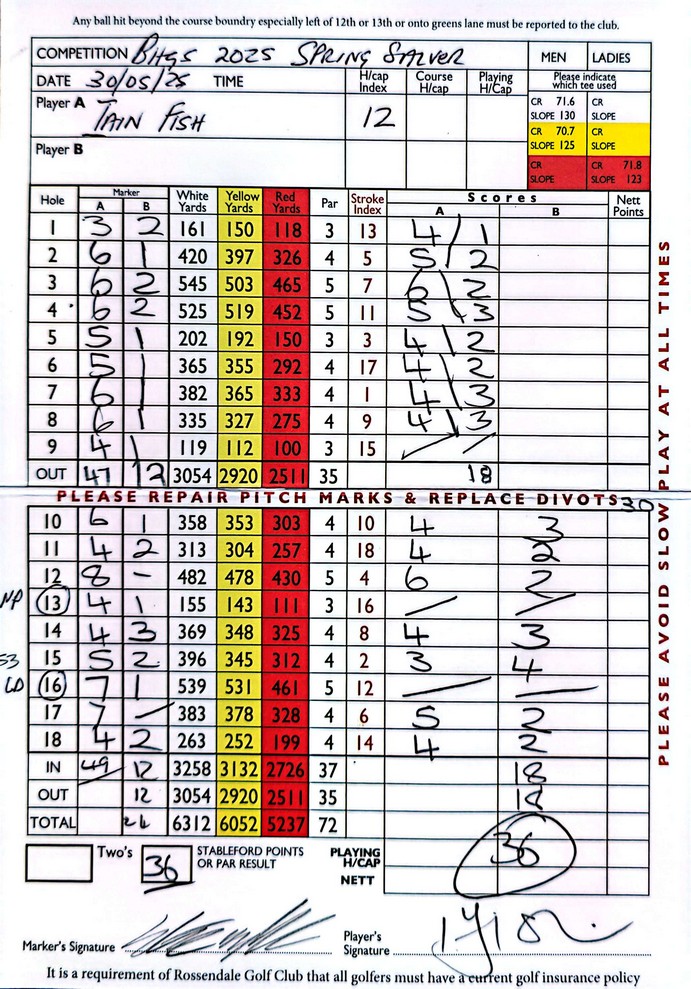 Any ball hit beyond the course boundry especially left of 12th or 13th or onto greens lane must be reported to the club.
COMPETITION BHGS 2025 SPRING SALVER MEN LADIES
DATE 30/05/25 TIME H/cap Index Course H/cap Playing H/Cap Please indicate which tee used
Player A IAIN FISH 12 CR 71.6 SLOPE 130 CR SLOPE
CR 70.7 SLOPE 125 CR SLOPE
Player B CR SLOPE CR 71.8 SLOPE 123
Hole Marker A B White Yards Yellow Yards Red Yards Par Stroke Index Scores A B Nett Points
1 3 2 161 150 118 3 13 4/1
2 6 1 420 397 326 4 5 5/2
3 6 2 545 503 465 5 7 6\2
4 6 2 525 519 452 5 11 5\3
5 5 1 202 192 150 3 3 4\2
6 5 1 365 355 292 4 17 4\2
7 6 1 382 365 333 4 1 4\3
8 6 1 335 327 275 4 9 4\3
9 4 1 119 112 100 3 15 / /
OUT 47 12 3054 2920 2511 35 18
PLEASE REPAIR PITCH MARKS & REPLACE DIVOTS 30
10 6 1 358 353 303 4 10 4 3
11 4 2 313 304 257 4 18 4 2
12 8 - 482 478 430 5 4 6 2
NP 13 4 1 155 143 111 3 16 / /
14 4 3 369 348 325 4 8 4 3
53 15 5 2 396 345 312 4 2 3 4
LD 16 7 1 539 531 461 5 12 — —
17 7 / 383 378 328 4 6 5 2
18 4 2 263 252 199 4 14 4 2
IN 49 12 3258 3132 2726 37 18
OUT 12 3054 2920 2511 35 18
TOTAL 24 6312 6052 5237 72
36
Two's 36 STABLEFORD POINTS OR PAR RESULT PLAYING H/CAP
NETT
Marker's Signature Player's Signature
It is a requirement of Rossendale Golf Club that all golfers must have a current golf insurance policy
PLEASE AVOID SLOW PLAY AT ALL TIMES